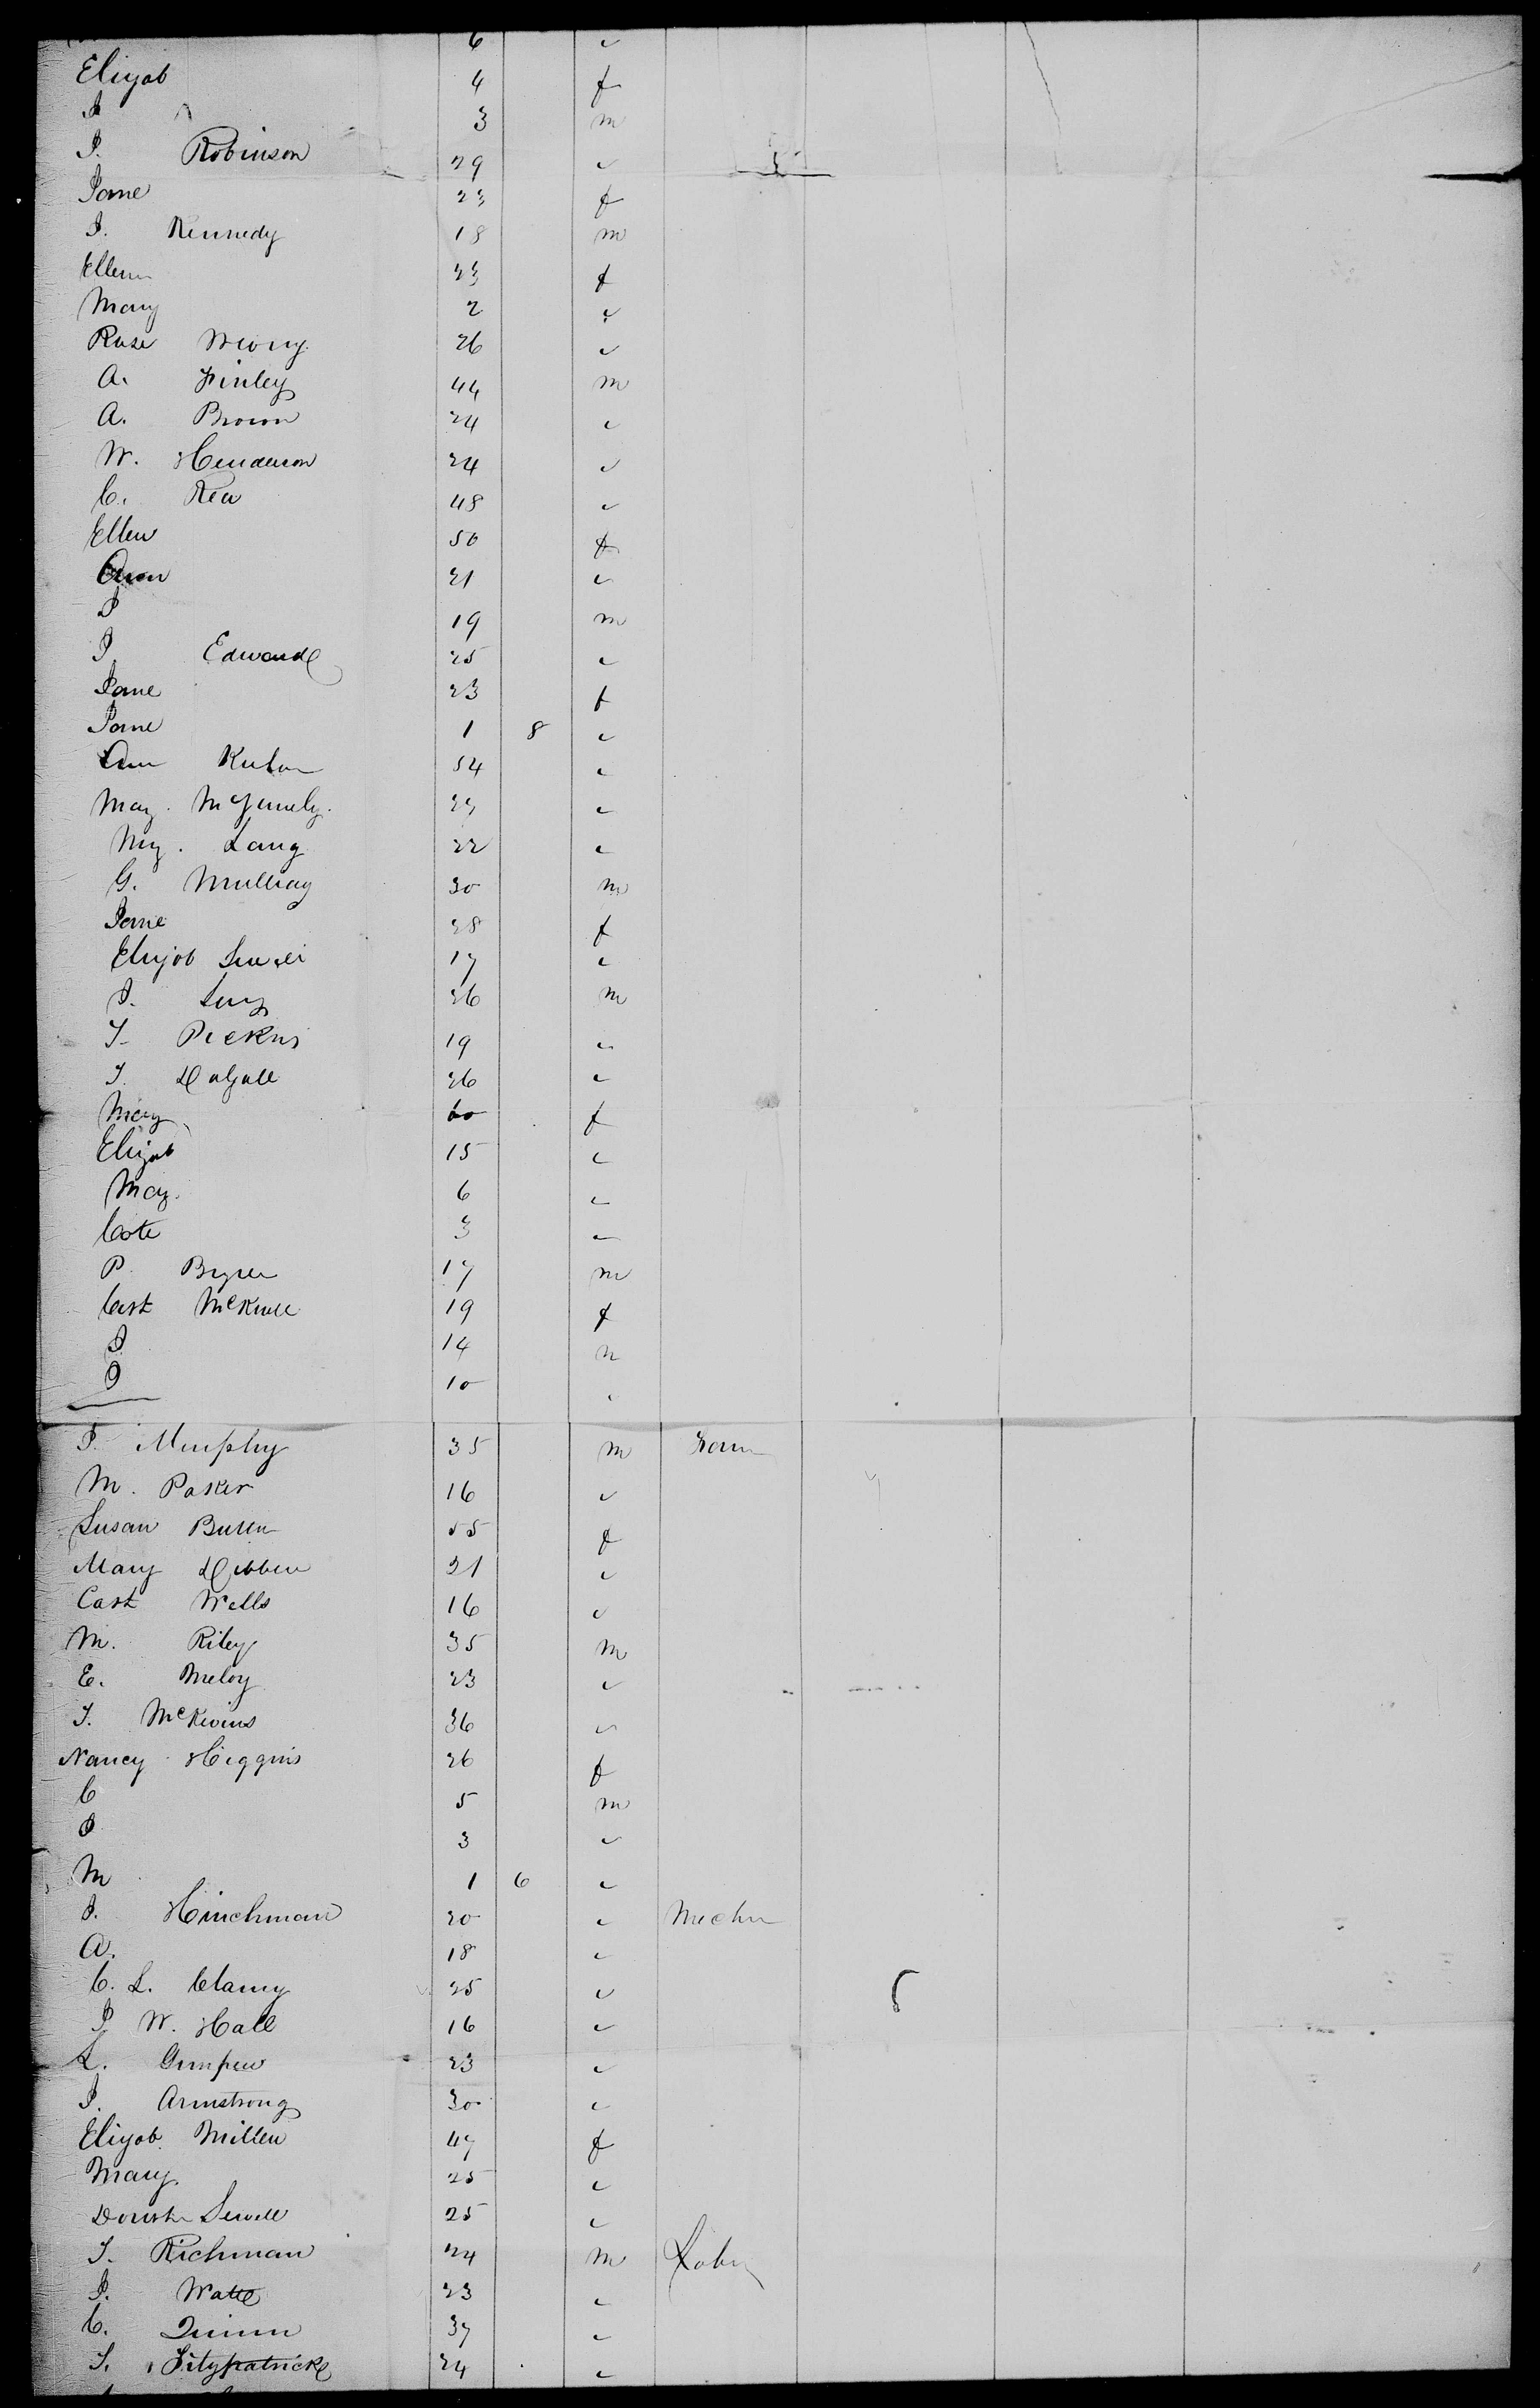 6 "
Elizab 4 f
J 3 m
J. Robinson 29 "
Jane 23 f
J. Kennedy 18 m
Ellen 23 f
Mary 2 "
Rose 26 "
A. Finley 44 m
A. Brown 24 "
W. Henderson 24 "
C. Rea 48 "
Ellen 50 f
Ann 21 "
J 19 m
J Edwards 25 "
Jane 23 f
Jane 1 8 "
Ann 54 "
Mary "
Lang 22 "
G. 30 m
Jane 28 f
Elizab 17 "
J. 26 m
T. 19 "
T. 26 "
Mary 60 f
Elizab 15 "
Mary 6 "
Cate 3 "
P. 17 m
Cath 19 f
J 14 m
J 10 "
J. Murphy 35 m Farm
M. Paker 16 "
Susan 55 f
Mary Dibben 21 "
Cath Wells 16 "
M. Riley 35 m
E. Meloy 23 "
T. McKivins 36 "
Nancy Higgins 26 f
C 5 m
J 3 "
M 1 6 "
J. Hinchman 20 " Mechn
A. 18 "
C. L. Clancy 25 "
J W. Hall 16 "
L. 23 "
J. Armstrong 30 "
Elizab Miller 47 f
Mary 25 "
Sewell 25 "
T. Richman 24 m Labr
J. Watts 23 "
C. Quinn 37 "
T. Fitzpatrick 24 "